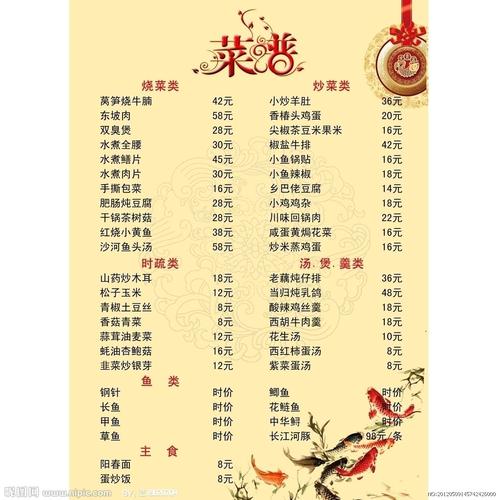 菜谱
烧菜类
莴笋烧牛腩 42元
东坡肉 58元
双臭煲 28元
水煮全腰 30元
水煮鳝片 45元
水煮肉片 30元
手撕包菜 16元
肥肠炖豆腐 28元
干锅茶树菇 28元
红烧小黄鱼 38元
沙河鱼头汤 58元
炒菜类
小炒羊肚 36元
香椿头鸡蛋 20元
尖椒茶豆米果米 16元
椒盐牛排 42元
小鱼锅贴 16元
小鱼辣椒 18元
乡巴佬豆腐 14元
小鸡鸡杂 18元
川味回锅肉 22元
咸蛋黄焗花菜 16元
炒米蒸鸡蛋 16元
时疏类
山药炒木耳 18元
松子玉米 12元
青椒土豆丝 8元
香菇青菜 8元
蒜茸油麦菜 12元
蚝油杏鲍菇 16元
韭菜炒银芽 12元
汤.煲.羹类
老藕炖仔排 36元
当归炖乳鸽 48元
酸辣鸡丝羹 18元
西胡牛肉羹 18元
花生汤 10元
西红柿蛋汤 8元
紫菜蛋汤 8元
鱼 类
钢针 时价
长鱼 时价
甲鱼 时价
草鱼 时价
鲫鱼 时价
花鲢鱼 时价
中华鲟 时价
长江河豚 98元/条
主 食
阳春面 8元
蛋炒饭 8元
昵图网 www.nipic.com